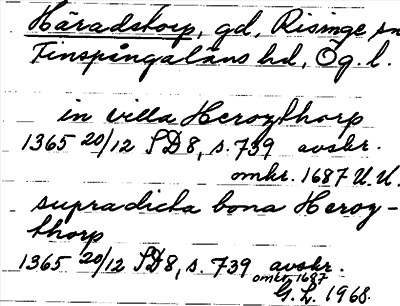 Häradstorp, gd, Risinge sn
Finspångaläns hd, Ög. l.
in villa Herozthorp
1365 20/12 SD8, s. 739 avskr.
omkr. 1687 U.U.
supradicta bona Heroz-
thorp
1365 20/12 SD8, s. 739 avskr.
omkr. 1687
G. L. 1968.